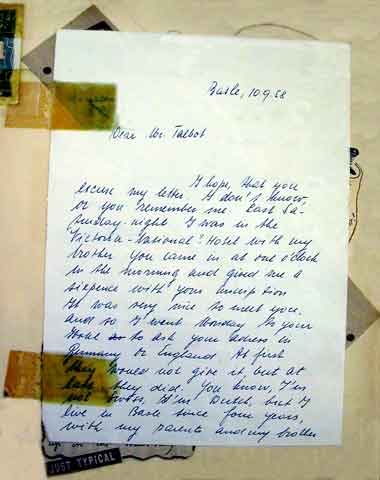 Basle, 10.9.58
Dear Mr. Talbot
I hope, that you
excuse my letter. I don't know,
or you remember me. Last Sa-
turday-night I was in the
Victoria-National! Hotel with my
brother. You came in at one o'clock
in the morning and gived me a
sixpence with your inscription
It was very nice to meet you.
and so I went Monday to your
Hotel to ask your adress in
Germany or England. At first
they would not give it, but at
last they did. You know, I'm
not Swiss, I'm Dutch, but I
live in Basle since four years,
with my parents and my brother
JUST TYPICAL